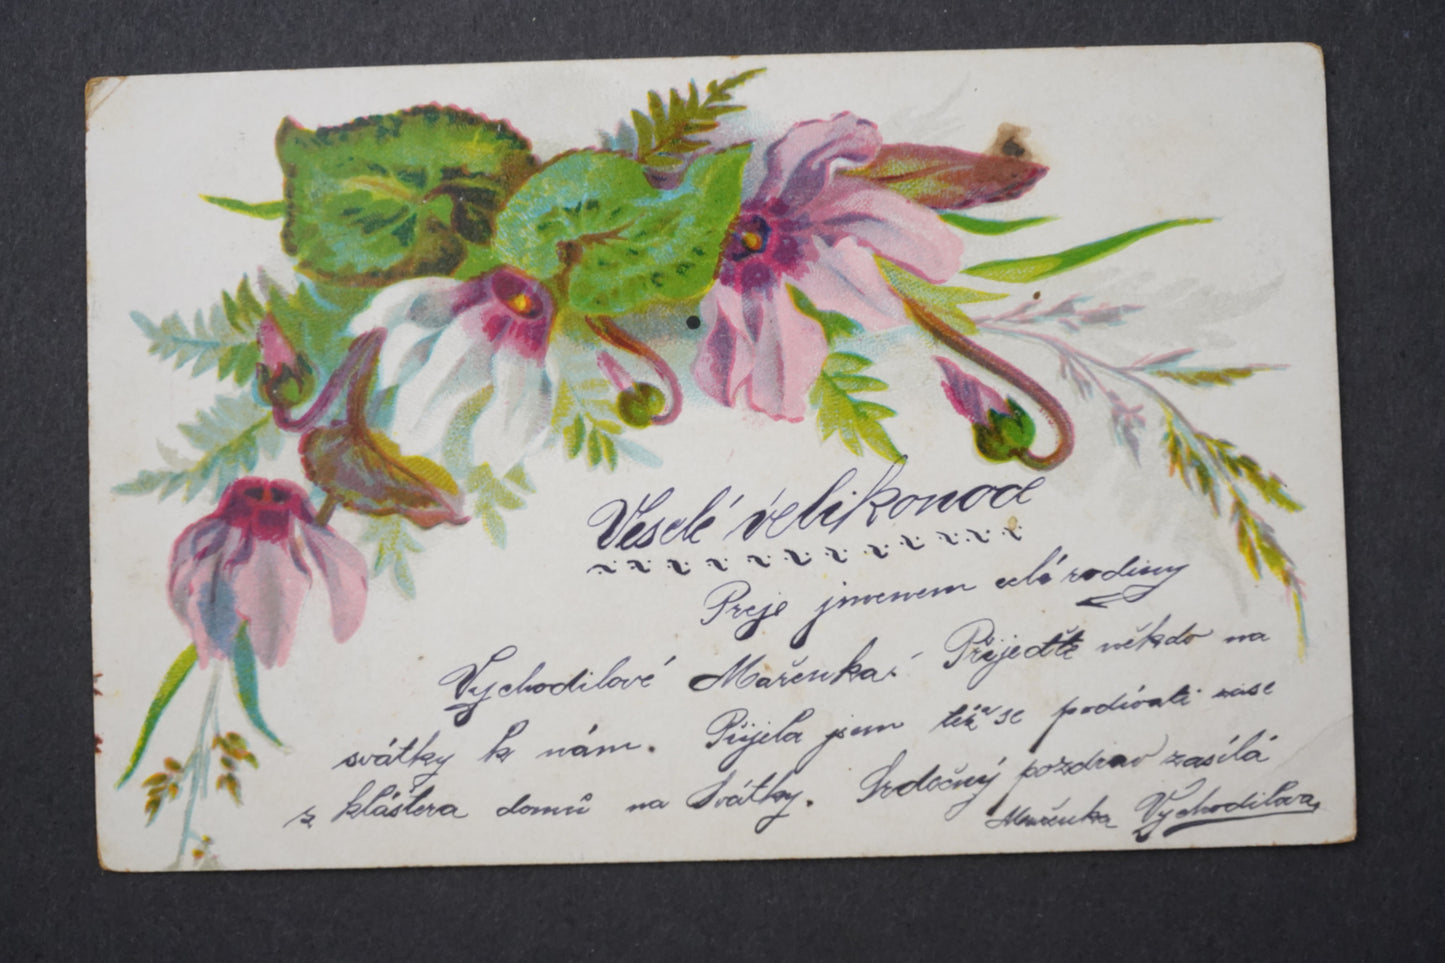 Veselé velikonoce
Preje jmenem celé rodiny
Vychodilové Mařenka. Přijeďte někdo na
svátky k nám. Přijela jsem též se podívati zase
z kláštera domů na svátky. Srdečný pozdrav zasílá
Mařenka Vychodilova,